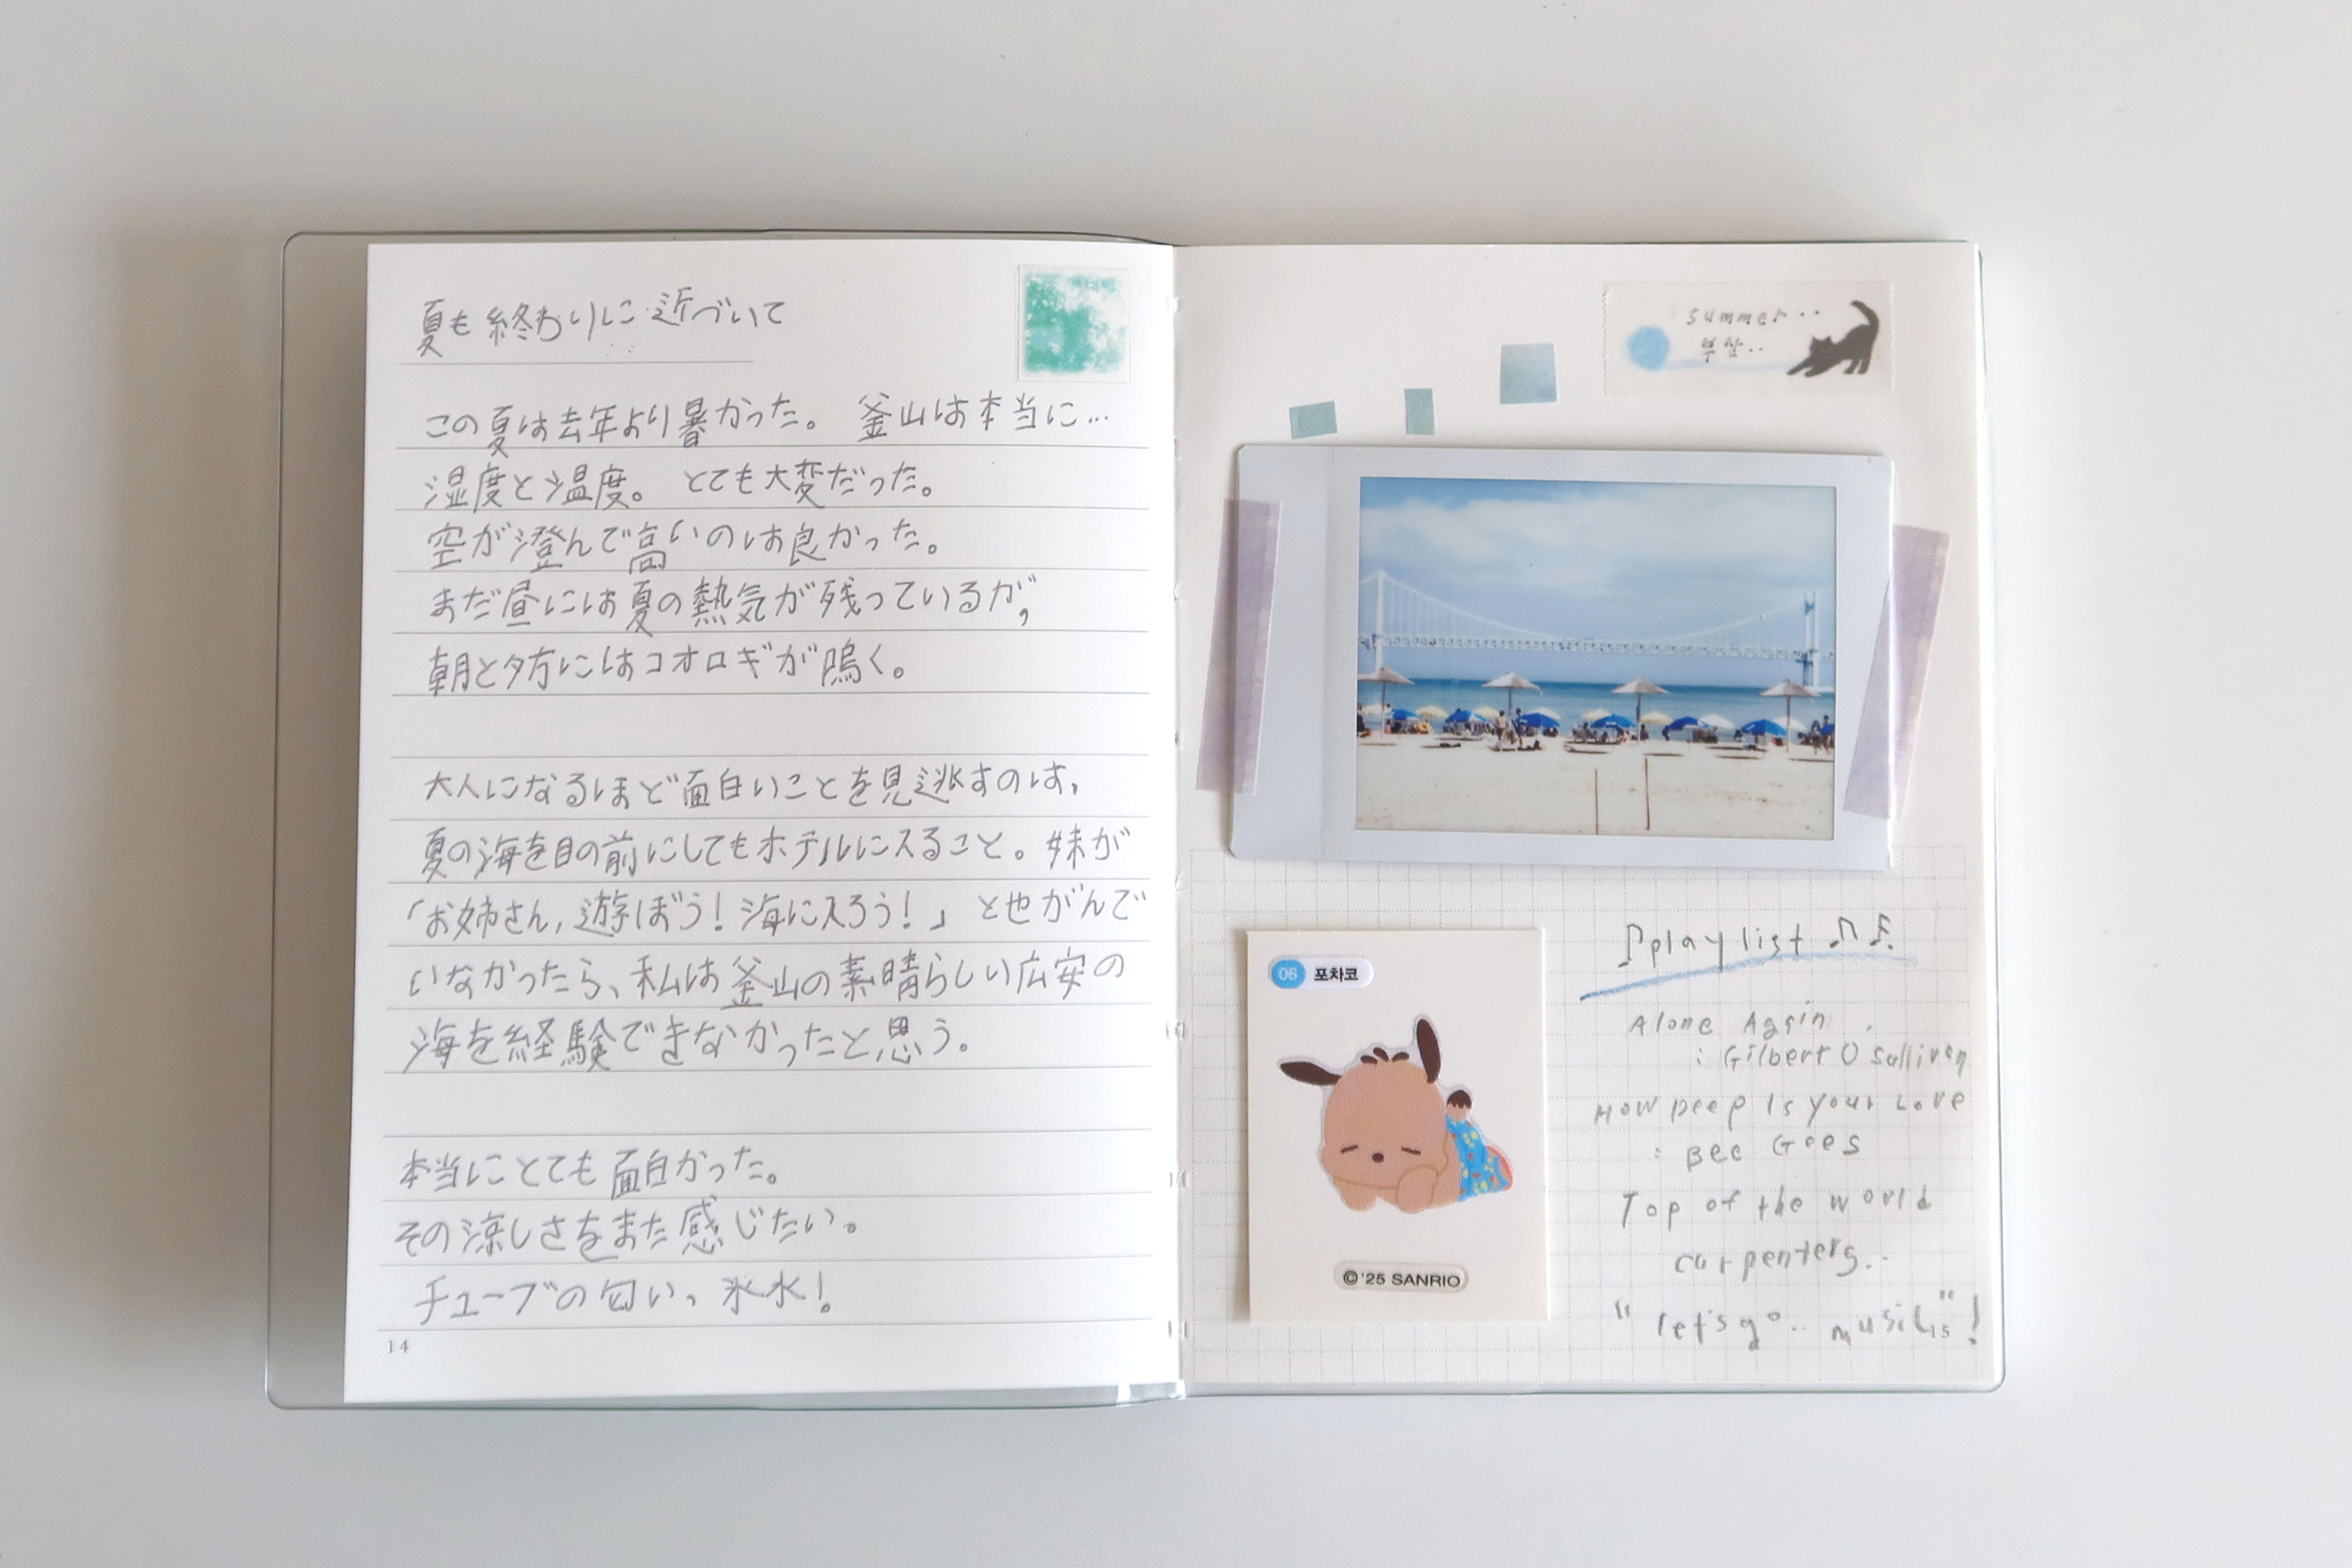 夏も終わりに近づいて
この夏は去年より暑かった。 釜山は本当に…
湿度と温度。 とても大変だった。
空が澄んで高いのは良かった。
まだ昼には夏の熱気が残っているが,
朝と夕方にはコオロギが鳴く。
大人になるほど面白いことを見逃すのは,
夏の海を目の前にしてもホテルに入ること。妹が
「お姉さん, 遊ぼう! 海に入ろう!」 とせがんで
いなかったら、私は釜山の素晴らしい広安の
海を経験できなかったと思う。
本当にとても面白かった。
その涼しさをまた感じたい。
チューブの匂い、氷水!
14
summer..
부산..
06 포차코
©'25 SANRIO
playlist
Alone Again
: Gilbert O Sullivan
How Deep Is Your Love
: Bee Gees
Top of the world
carpenters..
"let's go.. music"!